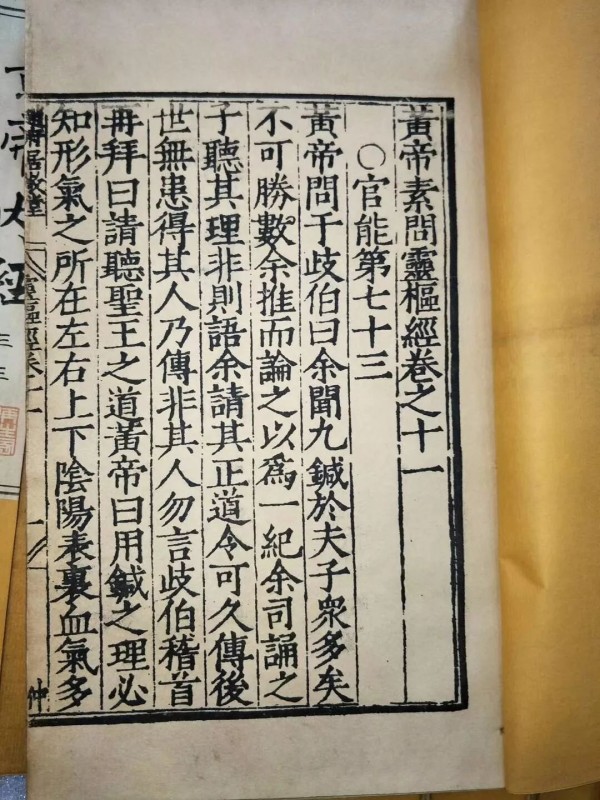 黃帝素問靈樞經卷之十一
○官能第七十三
黃帝問于歧伯曰余聞九鍼於夫子衆多矣
不可勝數余推而論之以爲一紀余司誦之
子聽其理非則語余請其正道令可久傳後
世無患得其人乃傳非其人勿言歧伯稽首
再拜曰請聽聖王之道黃帝曰用鍼之理必
知形氣之所在左右上下陰陽表裏血氣多
居敬堂
靈樞經卷十一
一
仲
內經